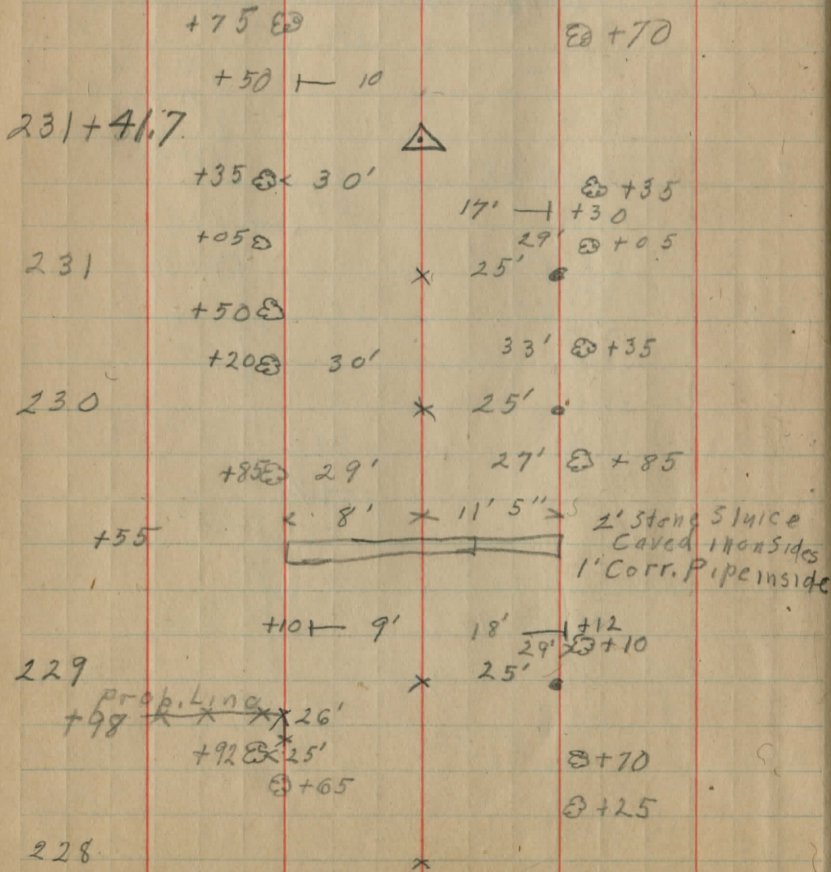 +75 +70
+50 10
231+41.7
+35 30' +35
17' +30
+05 29' +05
231 25'
+50
+20 30' 33' +35
230 25'
+85 29' 27' +85
8' 11' 5"
+55 2' Stone Sluice
Caved in on Sides
1' Corr. Pipe inside
+10 9' 18' +12
29' +10
229 25'
prop. Line
+98 26'
+92 25' +70
+65
+25
228